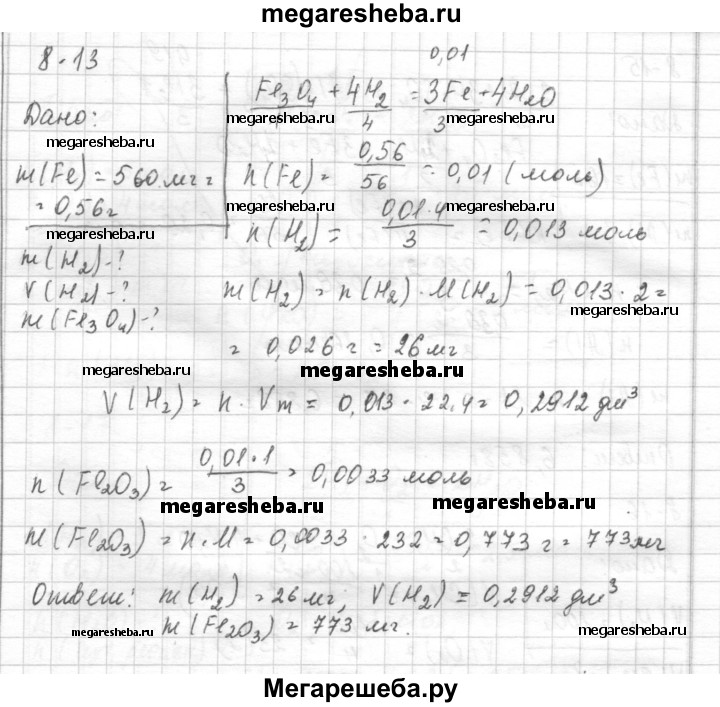 megaresheba.ru
8-13
0,01
Дано:
Fe₃O₄ + 4H₂ = 3Fe + 4H₂O
megaresheba.ru
1 4 3
megaresheba.ru megaresheba.ru
m(Fe) = 560 мг =
= 0,56 г
n(Fe) = 0,56/56 = 0,01 (моль)
megaresheba.ru megaresheba.ru megaresheba.ru
n(H₂) = 0,01·4/3 = 0,013 моль
m(H₂) - ?
V(H₂) - ?
m(Fe₃O₄) - ?
megaresheba.ru
m(H₂) = n(H₂)·M(H₂) = 0,013·2 =
megaresheba.ru
= 0,026 г = 26 мг
megaresheba.ru
V(H₂) = n·Vm = 0,013·22,4 = 0,2912 дм³
n(Fe₂O₃) = 0,01·1/3 = 0,0033 моль
megaresheba.ru megaresheba.ru
m(Fe₂O₃) = n·M = 0,0033·232 = 0,773 г = 773 мг
Ответ: m(H₂) = 26 мг; V(H₂) = 0,2912 дм³
megaresheba.ru m(Fe₂O₃) = 773 мг. megaresheba.ru
Мегарешеба.ру